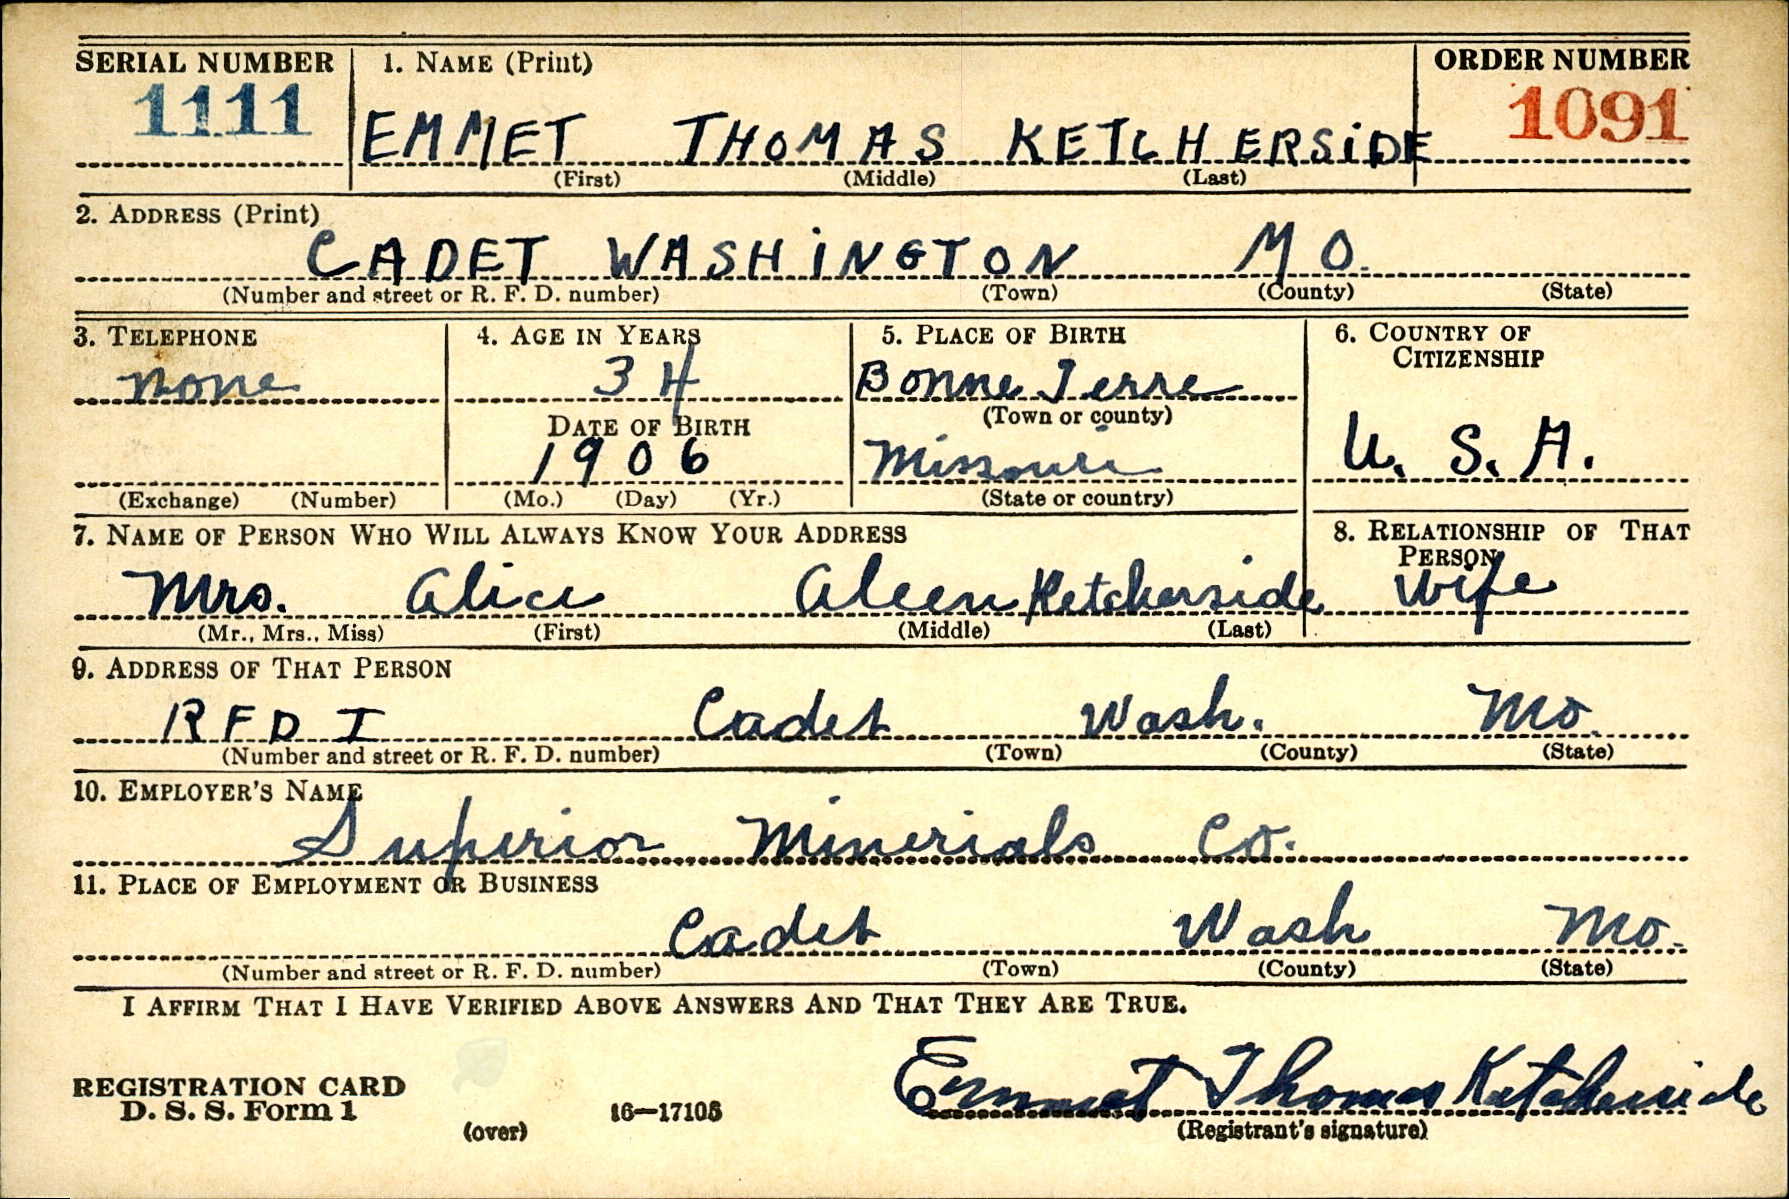 SERIAL NUMBER 1. NAME (Print) ORDER NUMBER
1111 EMMET THOMAS KETCHERSIDE 1091
(First) (Middle) (Last)
2. ADDRESS (Print)
CADET WASHINGTON MO.
(Number and street or R. F. D. number) (Town) (County) (State)
3. TELEPHONE 4. AGE IN YEARS 5. PLACE OF BIRTH 6. COUNTRY OF CITIZENSHIP
none 34 Bonne Terre
DATE OF BIRTH (Town or county)
1906 Missouri U. S. A.
(Exchange) (Number) (Mo.) (Day) (Yr.) (State or country)
7. NAME OF PERSON WHO WILL ALWAYS KNOW YOUR ADDRESS 8. RELATIONSHIP OF THAT PERSON
Mrs. Alice Aleen Ketcherside Wife
(Mr., Mrs., Miss) (First) (Middle) (Last)
9. ADDRESS OF THAT PERSON
RFD I Cadet Wash. Mo.
(Number and street or R. F. D. number) (Town) (County) (State)
10. EMPLOYER'S NAME
Superior Minerials Co.
11. PLACE OF EMPLOYMENT OR BUSINESS
Cadet Wash Mo.
(Number and street or R. F. D. number) (Town) (County) (State)
I AFFIRM THAT I HAVE VERIFIED ABOVE ANSWERS AND THAT THEY ARE TRUE.
Emmet Thomas Ketcherside
REGISTRATION CARD
D. S. S. Form 1 (over) 16—17105 (Registrant's signature)